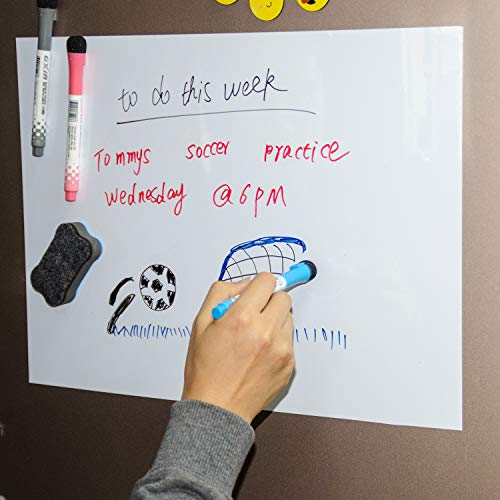 to do this week
Tommys soccer practice
Wednesday @6PM